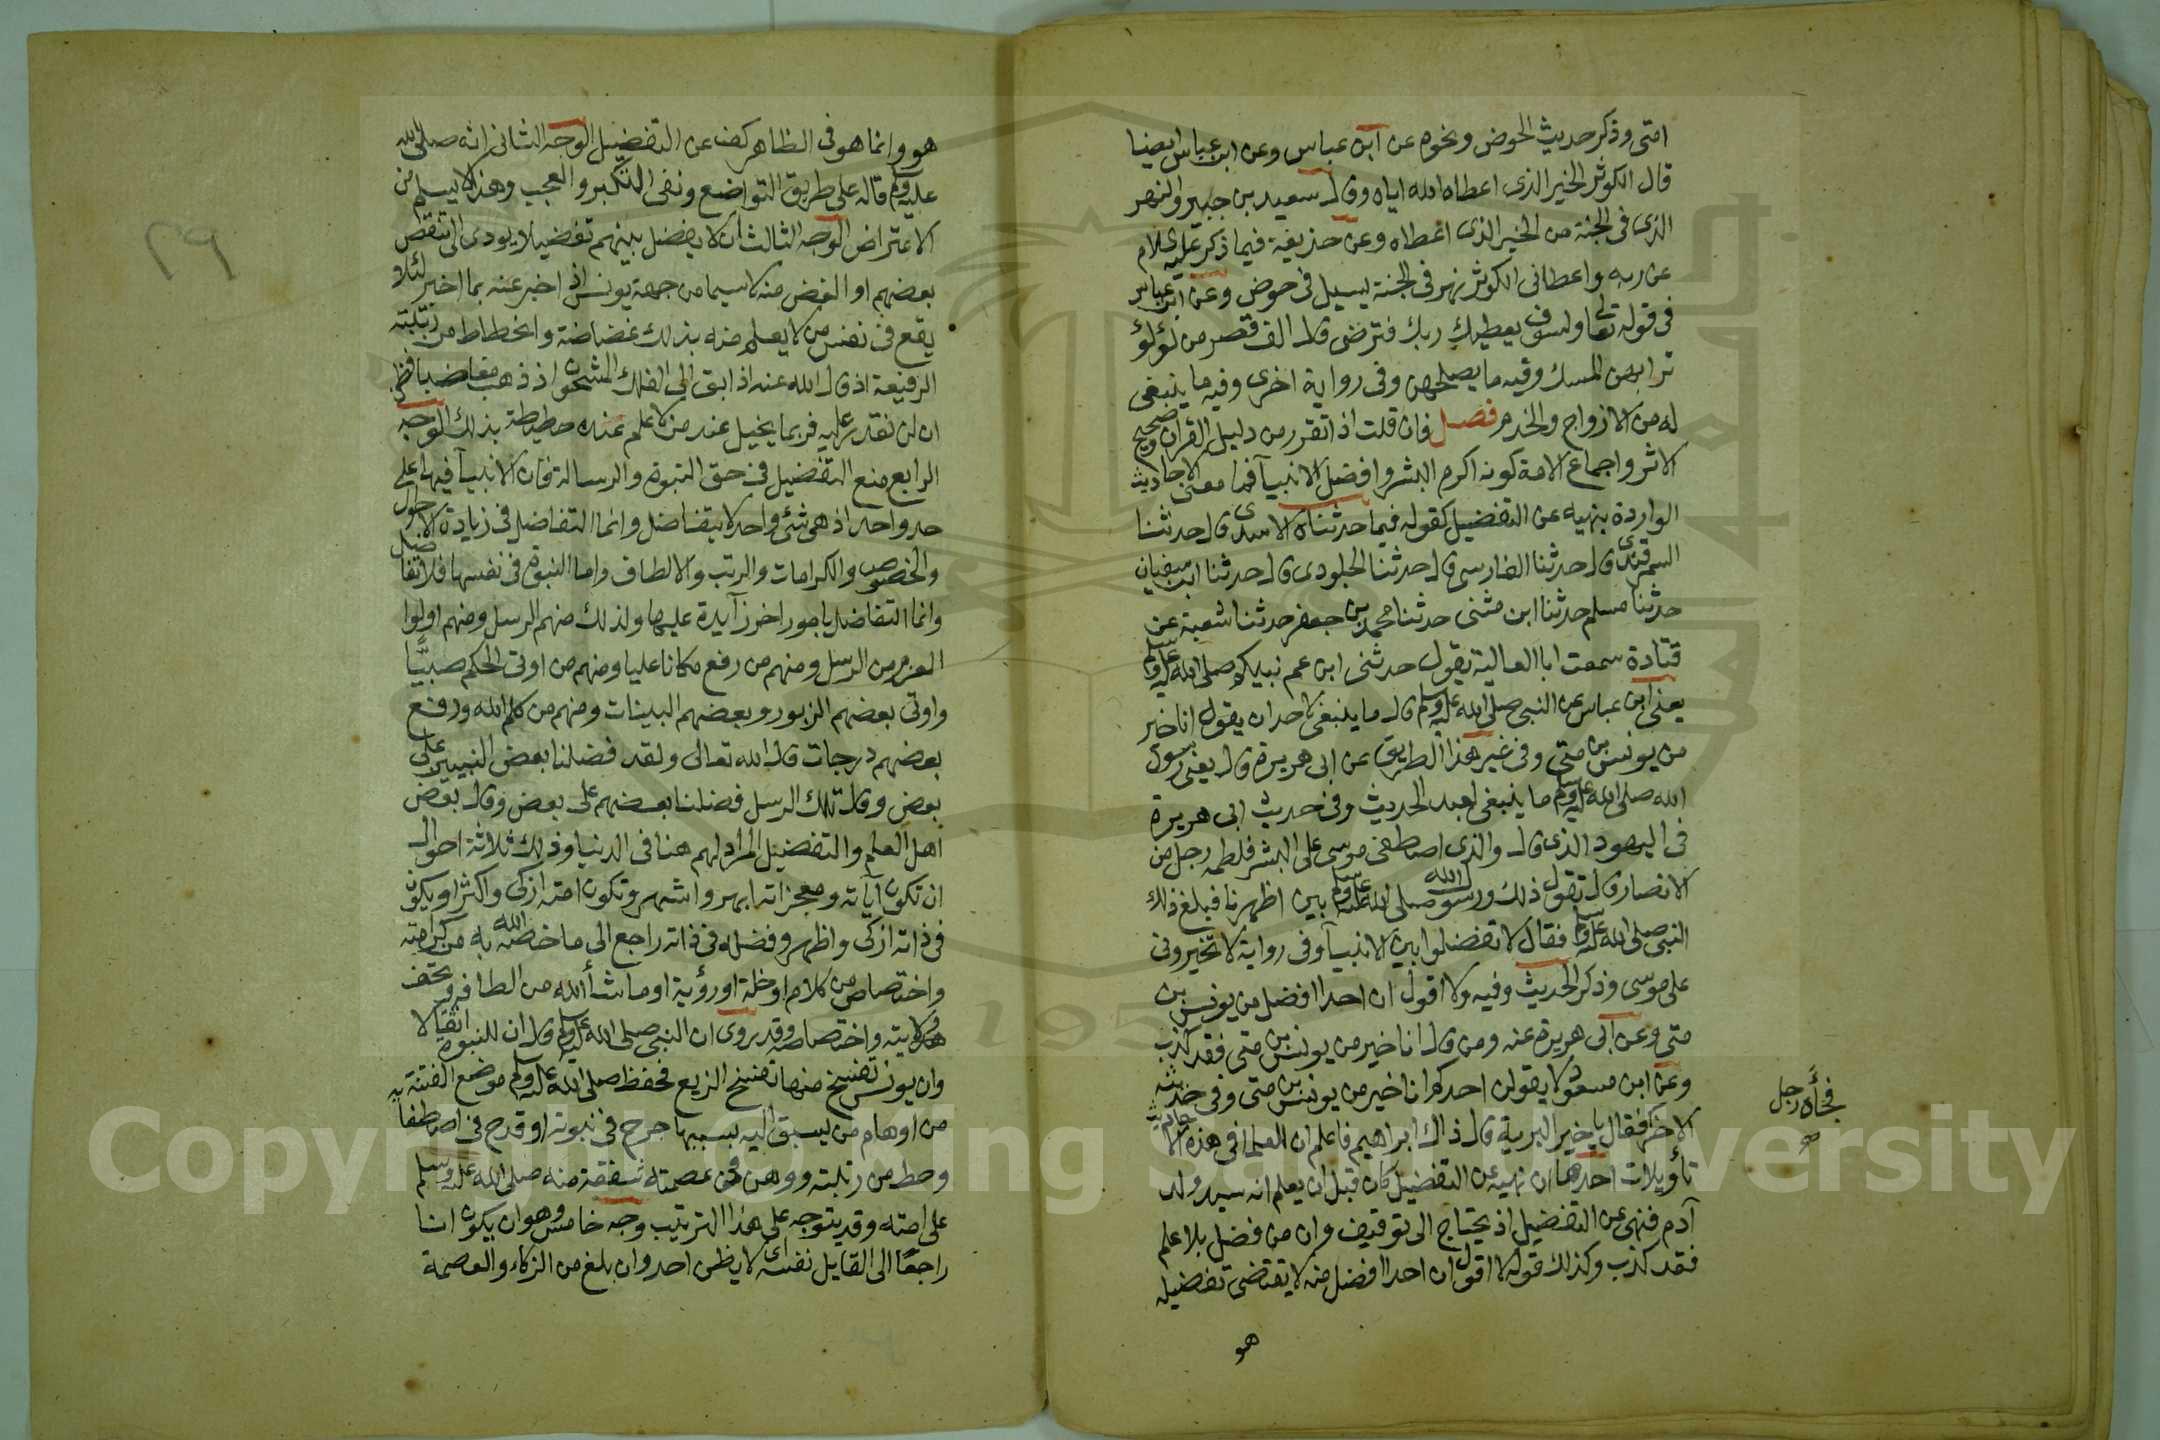 امتى وذكر حديث الحوض ونحوه عن ابن عباس وعن ابن عباس ايضا
قال الكوثر الخير الذى اعطاه الله اياه وقال سعيد بن جبير والنهر
الذى فى الجنة من الخير الذى اعطاه وعن حذيفة فيما ذكر عليه السلام
عن ربه واعطانى الكوثر نهر فى الجنة يسيل فى حوض وعن ابن عباس
فى قوله تعالى ولسوف يعطيك ربك فترضى قال الف قصر من لؤلؤ
ترابهن المسك وفيه ما يصلحهن وفى رواية اخرى وفيه ما ينبغى
له من الازواج والخدم فصل فان قلت اذا تقرر من دليل القران وصحيح
الاثر واجماع الامة كونه اكرم البشر وافضل الانبيآ فما معنى الاحاديث
الواردة بنهيه عن التفضيل كقوله فيما حدثناه الاسدى قال حدثنا
السمرقندى قال حدثنا الفارسى قال حدثنا الجلودى قال حدثنا ابن سفيان
حدثنا مسلم حدثنا ابن مثنى حدثنا محمد بن جعفر حدثنا شعبة عن
قتادة سمعت ابا العالية يقول حدثنى ابن عم نبيكم صلى الله عليه وسلم
يعنى ابن عباس عن النبى صلى الله عليه وسلم قال ما ينبغى لاحد ان يقول انا خير
من يونس بن متى وفى غير هذا الطريق عن ابى هريرة قال يعنى رسول
الله صلى الله عليه وسلم ما ينبغى لعبد الحديث وفى حديث ابى هريرة
فى اليهود الذى قال والذى اصطفى موسى على البشر فلطمه رجل من
الانصار وقال تقول ذلك ورسول الله صلى الله عليه وسلم بين اظهرنا فبلغ ذلك
النبى صلى الله عليه وسلم فقال لا تفضلوا بين الانبيآ وفى رواية لا تخيرونى
على موسى وذكر الحديث وفيه ولا اقول ان احدا افضل من يونس بن
متى وعن ابى هريرة عنه ومن قال انا خير من يونس بن متى فقد كذب
وعن ابن مسعود لا يقولن احدكم انا خير من يونس بن متى وفى حديثه
الاخر فقال يا خير البرية قال ذاك ابراهيم فاعلم ان للعلما فى هذه الاحاديث
تأويلات احدها ان نهيه عن التفضيل كان قبل ان يعلم انه سيد ولد
آدم فنهى عن التفضيل اذ يحتاج الى توقيف وان من فضل بلا علم
فقد كذب وكذلك قوله لا اقول ان احدا افضل منه لا يقتضى تفضيله
هو
فجأه رجل
صح
هو وانما هو فى الظاهر كف عن التفضيل الوجه الثانى انه صلى الله
عليه وسلم قاله على طريق التواضع ونفى التكبر والعجب وهذا لا يسلم من
الاعتراض الوجه الثالث ان لا يفضل بينهم تفضيلا يودى الى تنقص
بعضهم او الغض منه لا سيما من جهة يونس اذ اخبر عنه بما اخبر لئلا
يقع فى نفس من لا يعلم منه بذلك غضاضة وانحطاط من رتبته
الرفيعة اذ قال الله عنه اذ ابق الى الفلك المشحون اذ ذهب مغاضبا فظن
ان لن نقدر عليه فربما يخيل عند من لا علم عنده حطيطة بذلك الوجه
الرابع منع التفضيل فى حق النبوة والرسالة فان الانبيآ فيها على
حد واحد اذ هى شئ واحد لا يتفاضل وانما التفاضل فى زيادة الاحوال
والخصوص والكرامات والرتب والالطاف واما النبوة فى نفسها فلا تتفاضل
وانما التفاضل بامور اخر زآيدة عليها ولذلك منهم الرسل ومنهم اولوا
العزم من الرسل ومنهم من رفع مكانا عليا ومنهم من اوتى الحكم صبيّا
واوتى بعضهم الزبور وبعضهم البينات ومنهم من كلم الله ورفع
بعضهم درجات قال الله تعالى ولقد فضلنا بعض النبيين على
بعض وقال تلك الرسل فضلنا بعضهم على بعض وقال بعض
اهل العلم والتفضيل المراد لهم هنا فى الدنيا وذلك ثلاثة احوال
ان تكون آياته ومعجزاته ابهر واشهر وتكون امته ازكى واكثر او يكون
فى ذاته ازكى واظهر وفضله فى ذاته راجع الى ما خصه الله به من كرامته
واختصاص من كلام او خلة او رؤية او ما شأ الله من الطافه وتحف
ولايته واختصاصه وقد روى ان النبى صلى الله عليه وسلم قال ان للنبوة اثقالا
وان يونس تفسخ منها تفسخ الربع فحفظ صلى الله عليه وسلم موضع الفتنة به
من اوهام من يسبق اليه بسببها جرح فى نبوته او قدح فى اصطفا
وحط من رتبته ووهن فى عصمته شفقة منه صلى الله عليه وسلم
على امته وقد يتوجه على هذا الترتيب وجه خامس وهو ان يكون انا
راجعًا الى القايل نفسه اى لا يظن احد وان بلغ من الزكاء والعصمة
٢٩
Copyright © King Saud University
1957